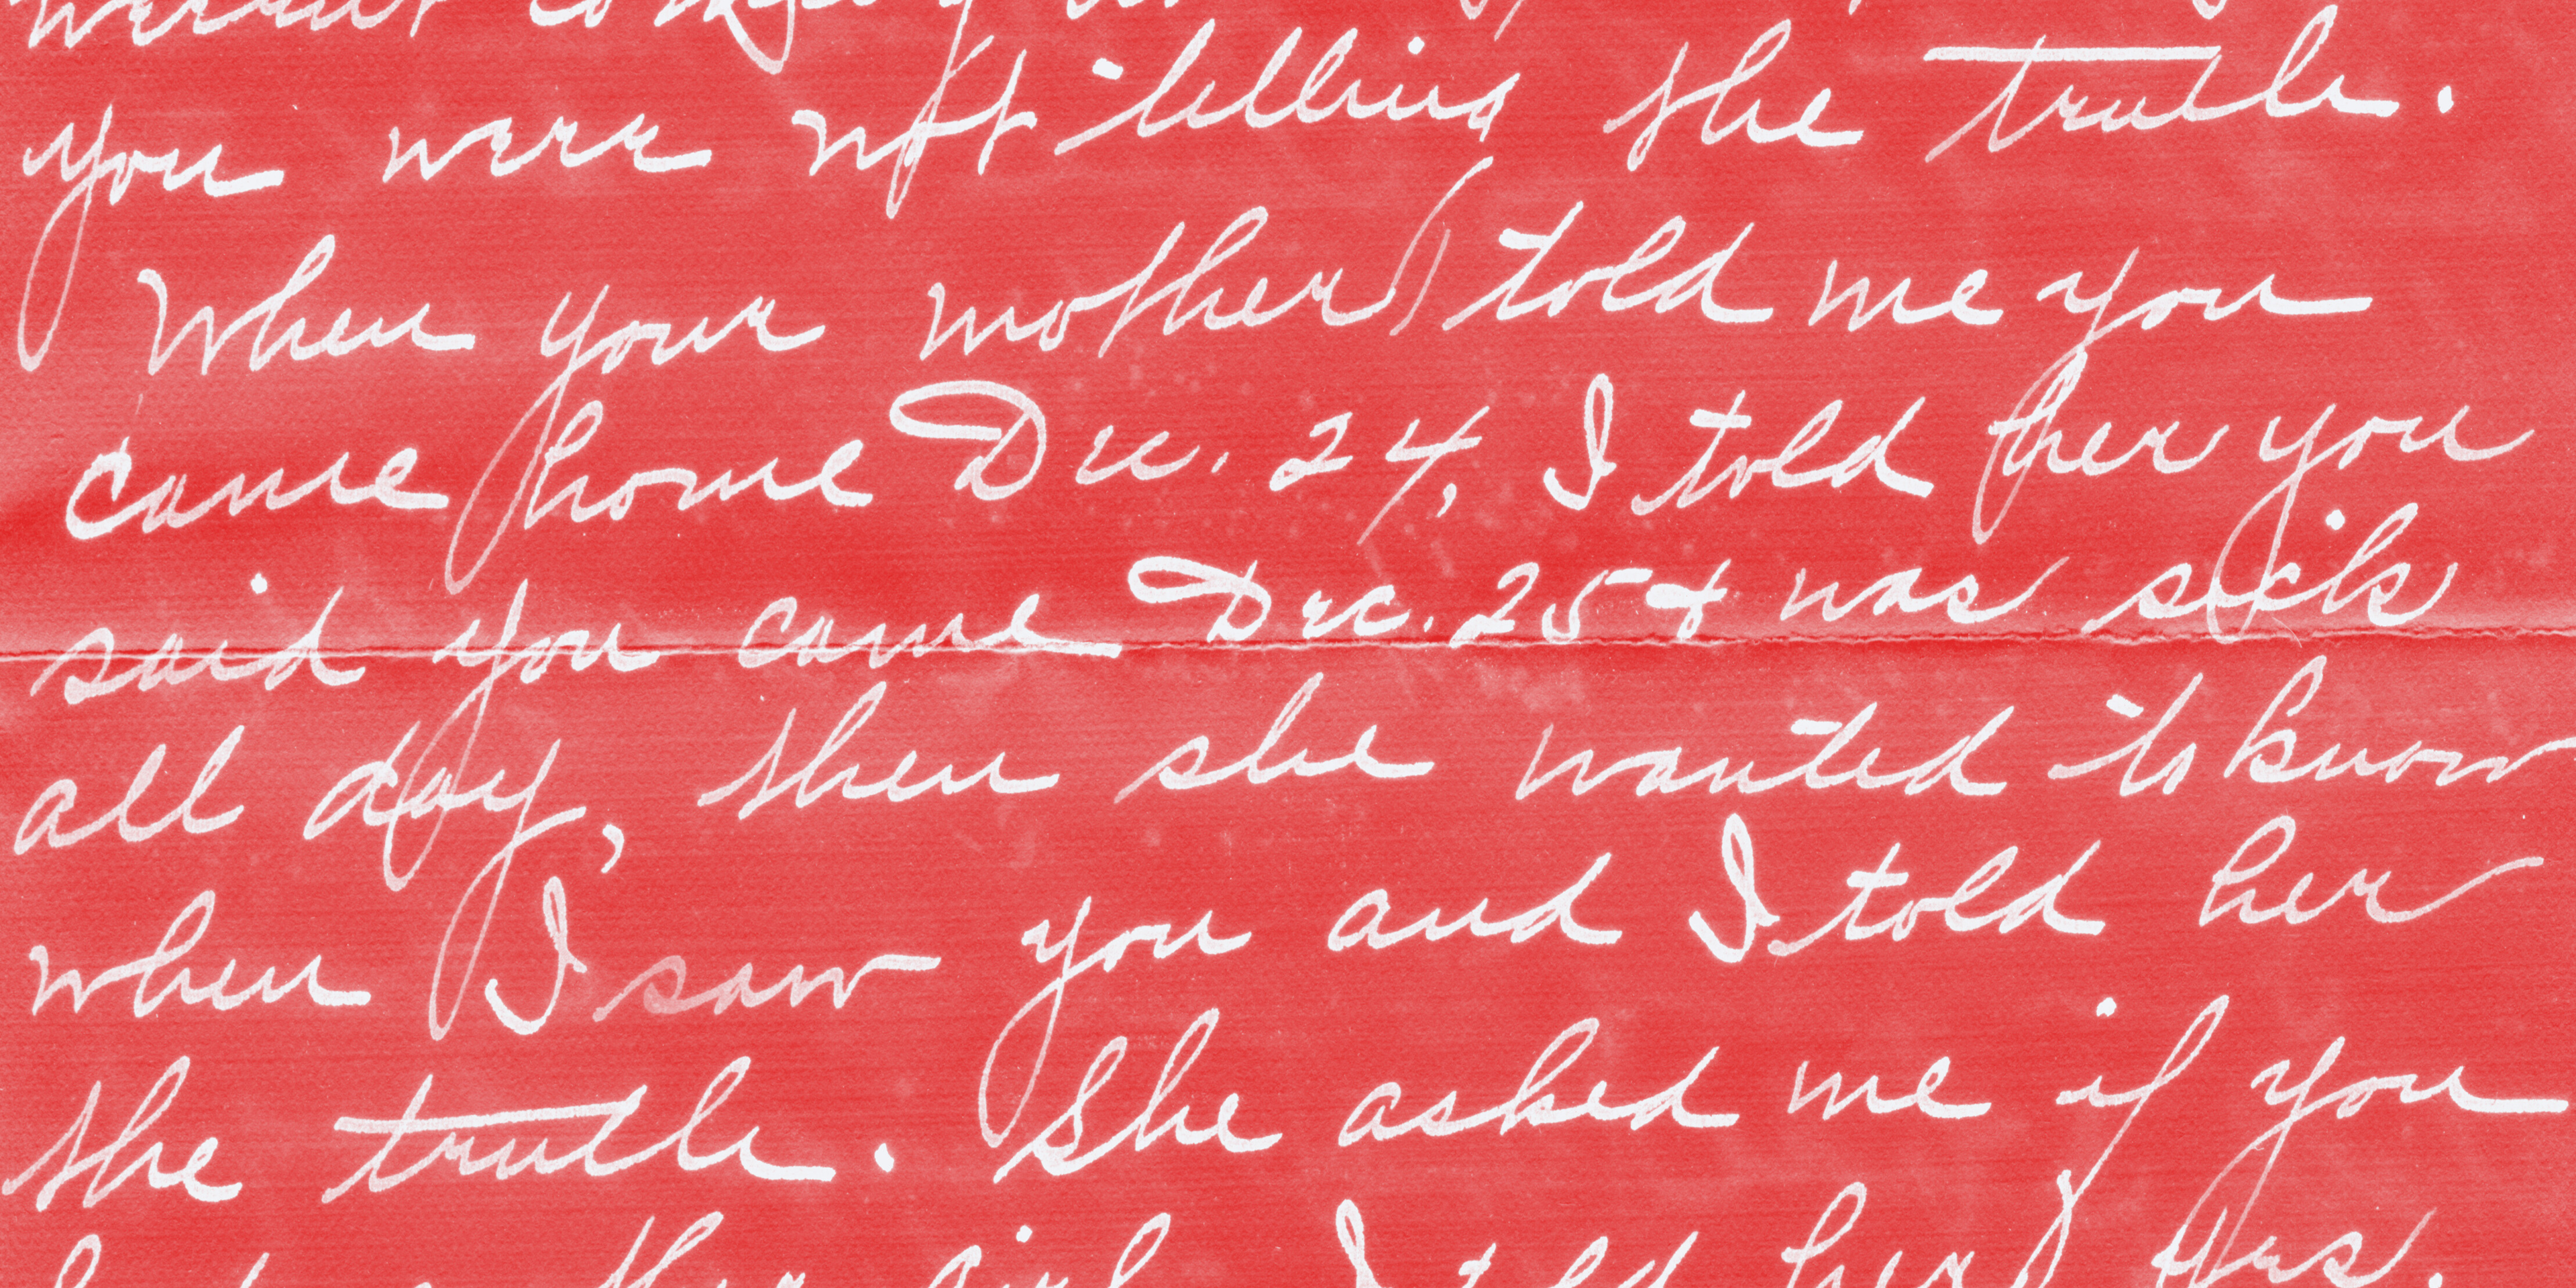 you were not telling the truth.
When your mother told me you
came home Dec. 24, I told her you
said you came Dec. 25 & was sick
all day, then she wanted to know
when I saw you and I told her
the truth. She asked me if you
I told her yes.